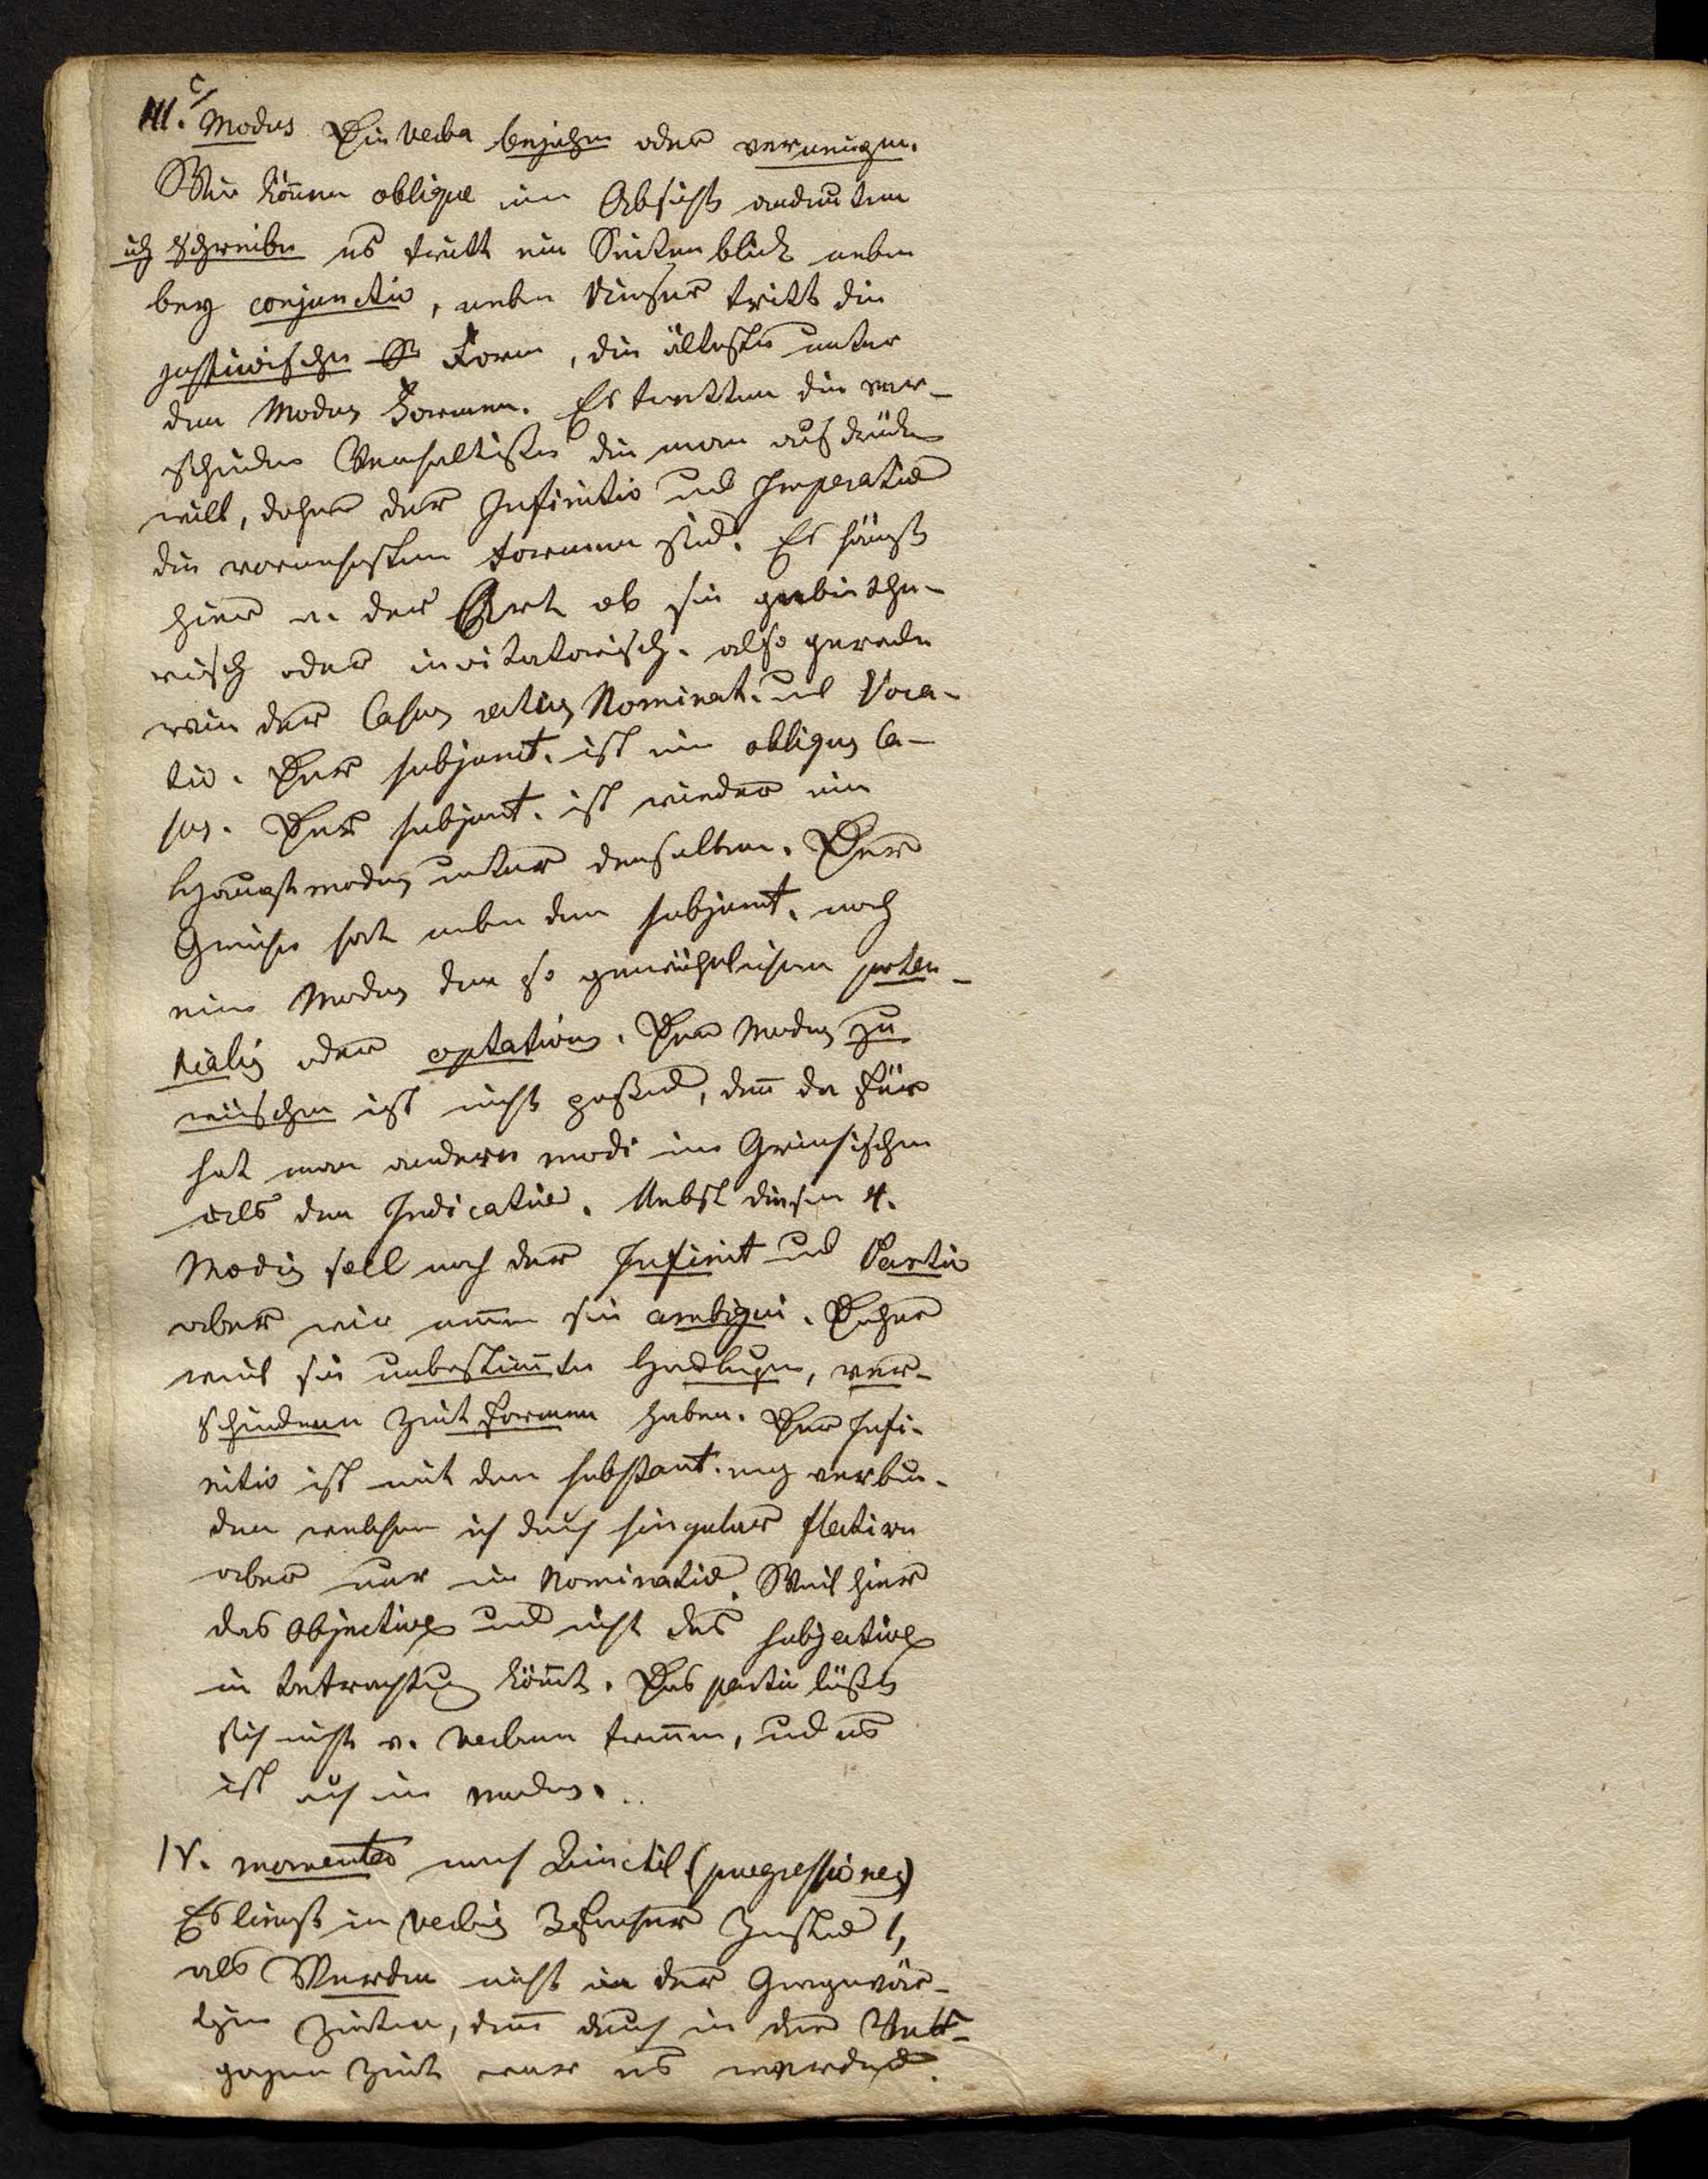 III. c/ Modus Die Verba bejahen oder verneigen.
Wir können oblique ein Absicht andeuten
ich schreibe es tritt ein Seitenblick neben
bey conjunctiv, neben dieser tritt die
Form, die älteste unter
den Modus Formen. Es tretten die ver-
schieden Verhaltiße die man ausdrüken
will, daher der Infinitiv und Imperativ
die vornehmsten Formen sind. Es hängt
hier v. der Art ab sie gebiethe-
risch oder invitatorisch. also gerade
wie der Casus rectus Nominat. und Voca-
tiv. Der subjunct. ist ein obliqus Ca-
sus. Der subjunt. ist wieder ein
Hauptmodus unter denselben. Der
Grieche hat neben dem subjunct. noch
eine Modus den so gewöhnlichen poten-
tialis oder optativus. Der Modus zu
wüschen ist nicht paßend, denn da für
hat man andere modi im Griechischen
als den Indicativ. Nebst diesen 4.
Modis soll noch der Infinit und Partic
aber wir nennen sie ambigui. Daher
weil sie unbestimte Handlugen, ver-
schiedenen Zeit formen haben. Der Infi-
nitiv ist mit dem substant. eng verbun-
den welchen ich durch singular flectiren
aber nur im Nominativ. Weil hier
das Objective und nicht das subjective
in betrachtung kömt. Das partic läßt
sich nicht v. verbum trennen, und es
ist auch ein modus.
IV. momentes nach Quinctil (progressiones)
Es liegt in verbis 3facher Zustand 1,
als Werden nicht in der Gegenwär-
tigen Zeiten, denn auch in der Ver-
gagen Zeit war es werdend.